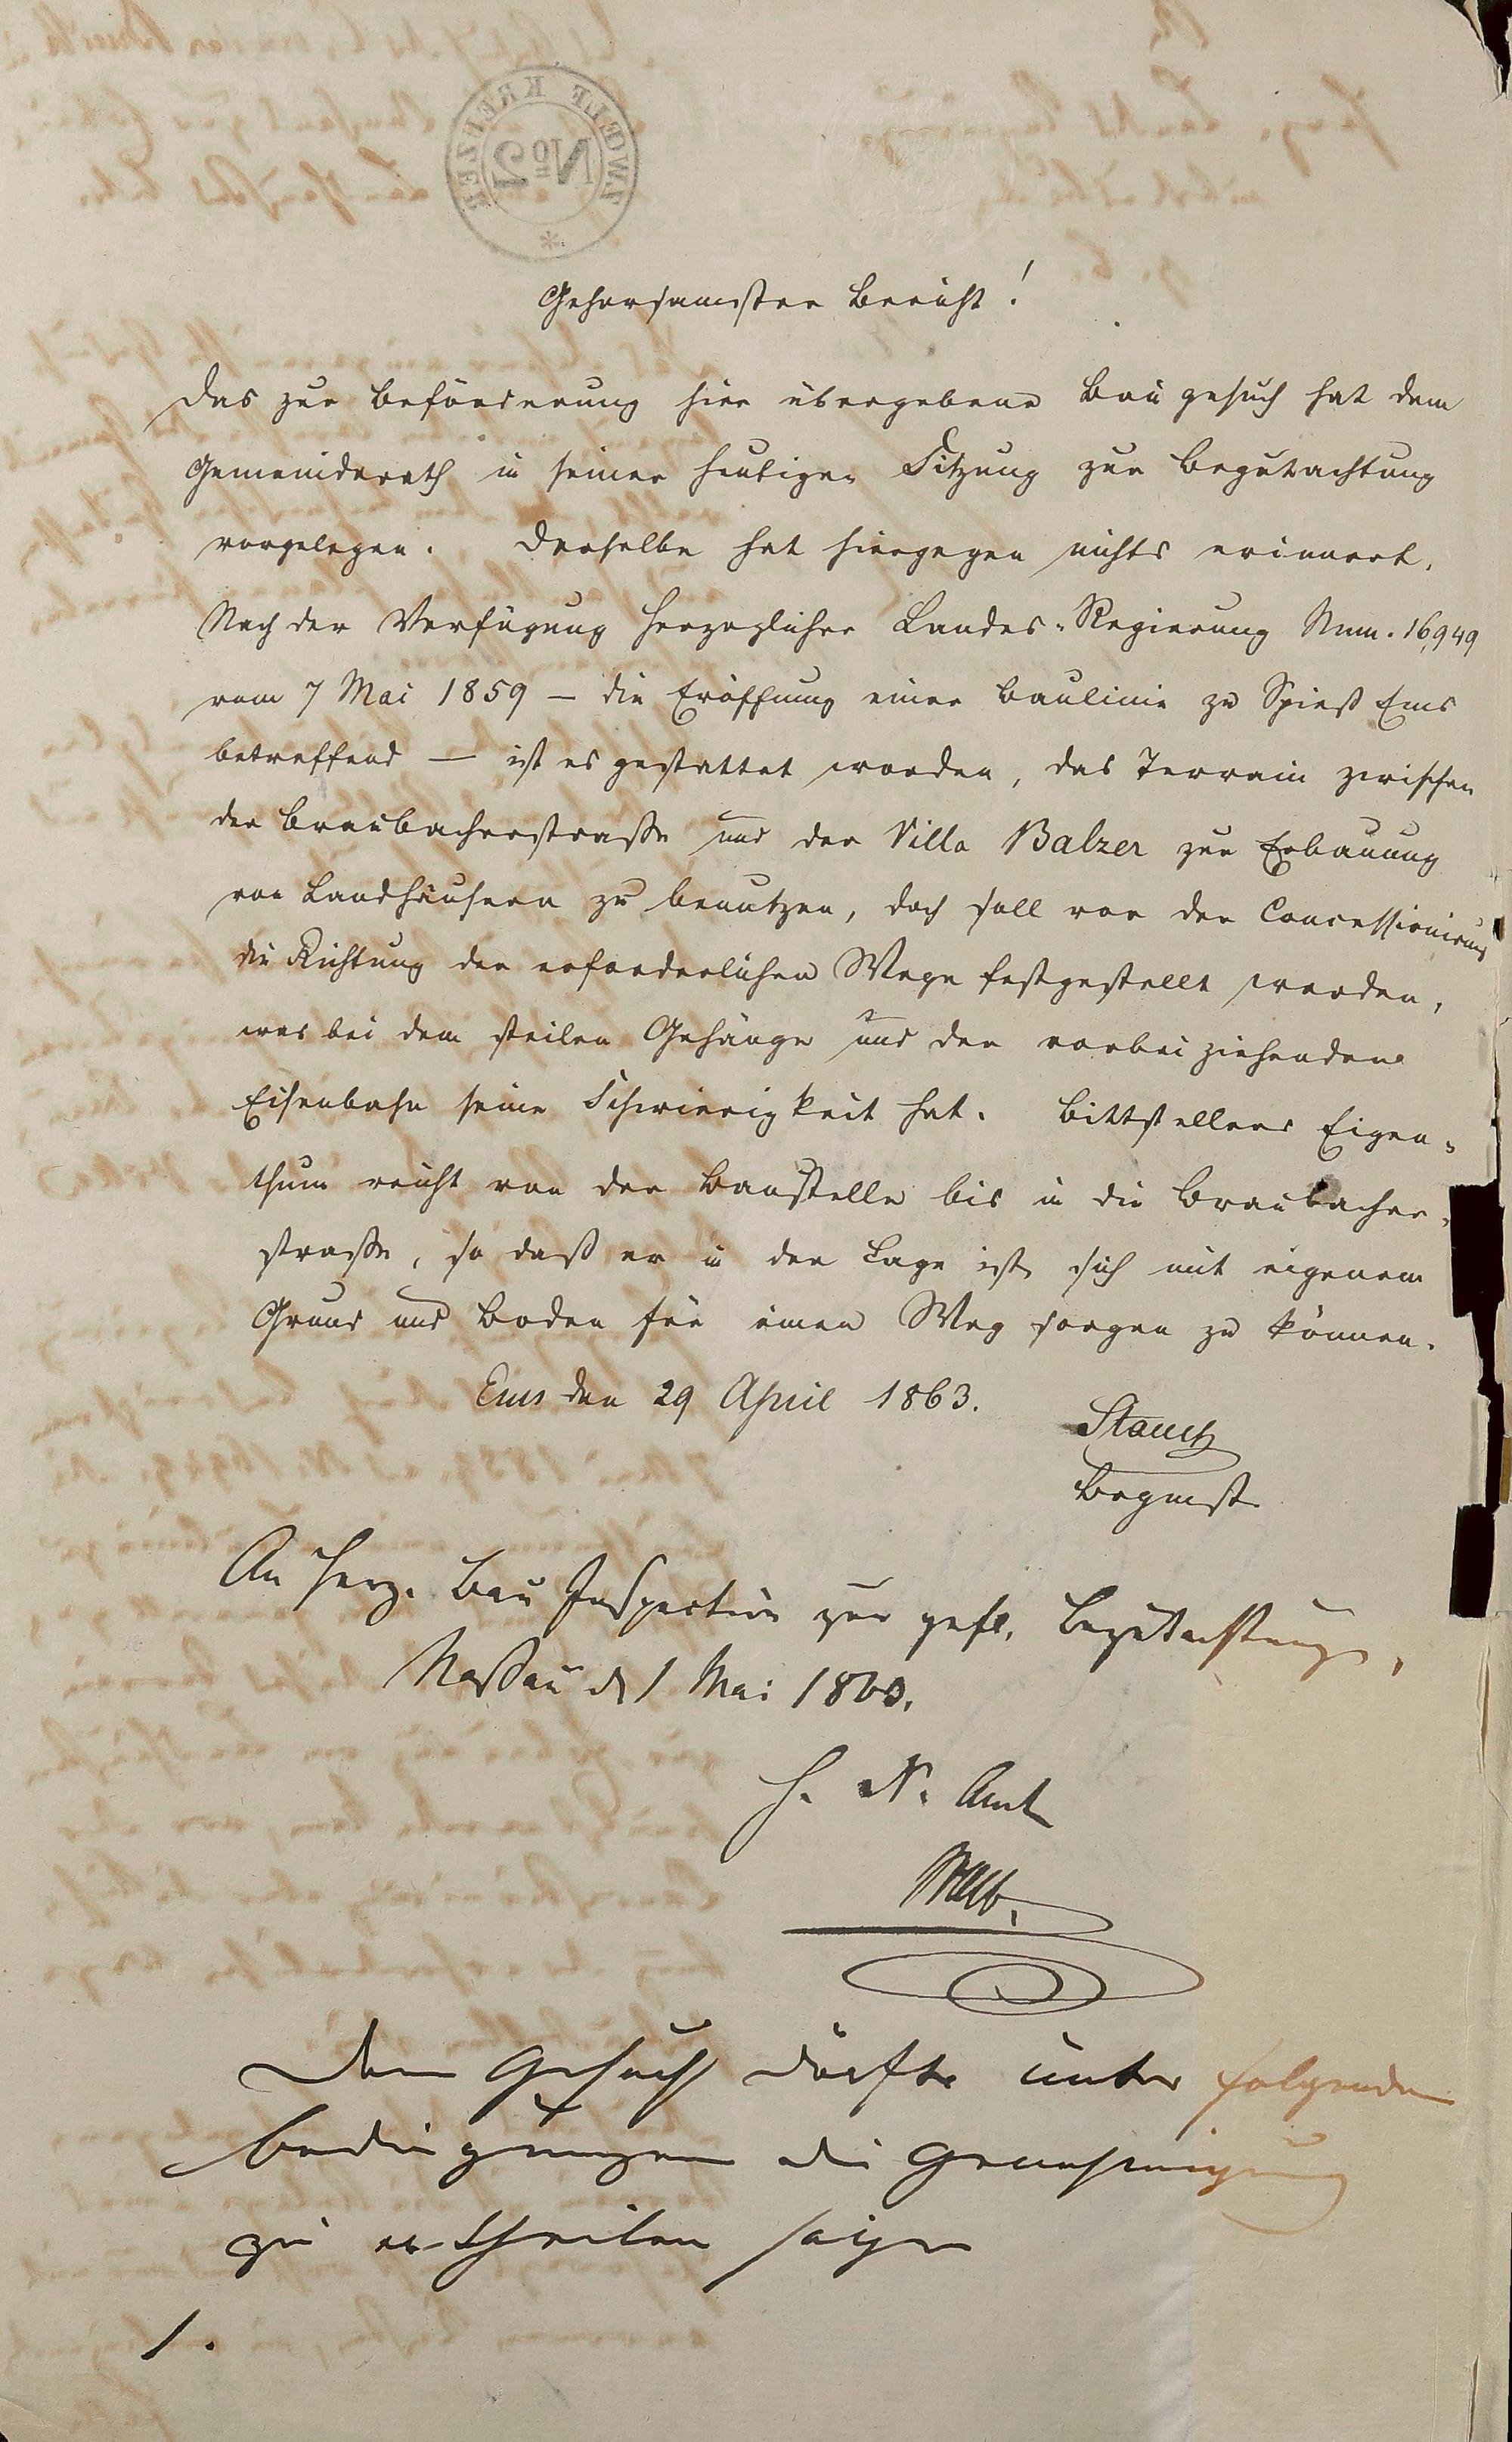 ZWEIE KREUZER
No 2
Gehorsamster Bericht!
Das zur Beförderung hier übergebene Baugesuch hat dem
Gemeinderath in seiner heutigen Sitzung zur Begutachtung
vorgelegen. Derselbe hat hiergegen nichts erinnert.
Nach der Verfügung Herzoglicher Landes-Regierung Num. 16,949
vom 7 Mai 1859 — die Eröffnung einer Baulinie zu Spieß Ems
betreffend — ist es gestattet worden, das Terrain zwischen
der Braubacherstraße und der Villa Balzer zur Erbauung
von Landhäusern zu benutzen, doch soll vor der Concessionirung
die Richtung der erforderlichen Wege festgestellt werden,
was bei dem steilen Gehänge und der vorbei ziehenden
Eisenbahn seine Schwierigkeit hat. Bittstellers Eigen-
thum reicht von der Baustelle bis in die Braubacher-
straße, so daß er in der Lage ist, sich mit eigenem
Grund und Boden für einen Weg sorgen zu können.
Ems den 29 April 1863.
Bürgmstr
An Herz. Bau Inspection zur gefl. Begutachtung,
Nassau d 1 Mai 1863.
H. N. Amt
Dem Gesuch dürfte unter folgenden
Bedingungen die Genehmigung
zu ertheilen seyn
1.